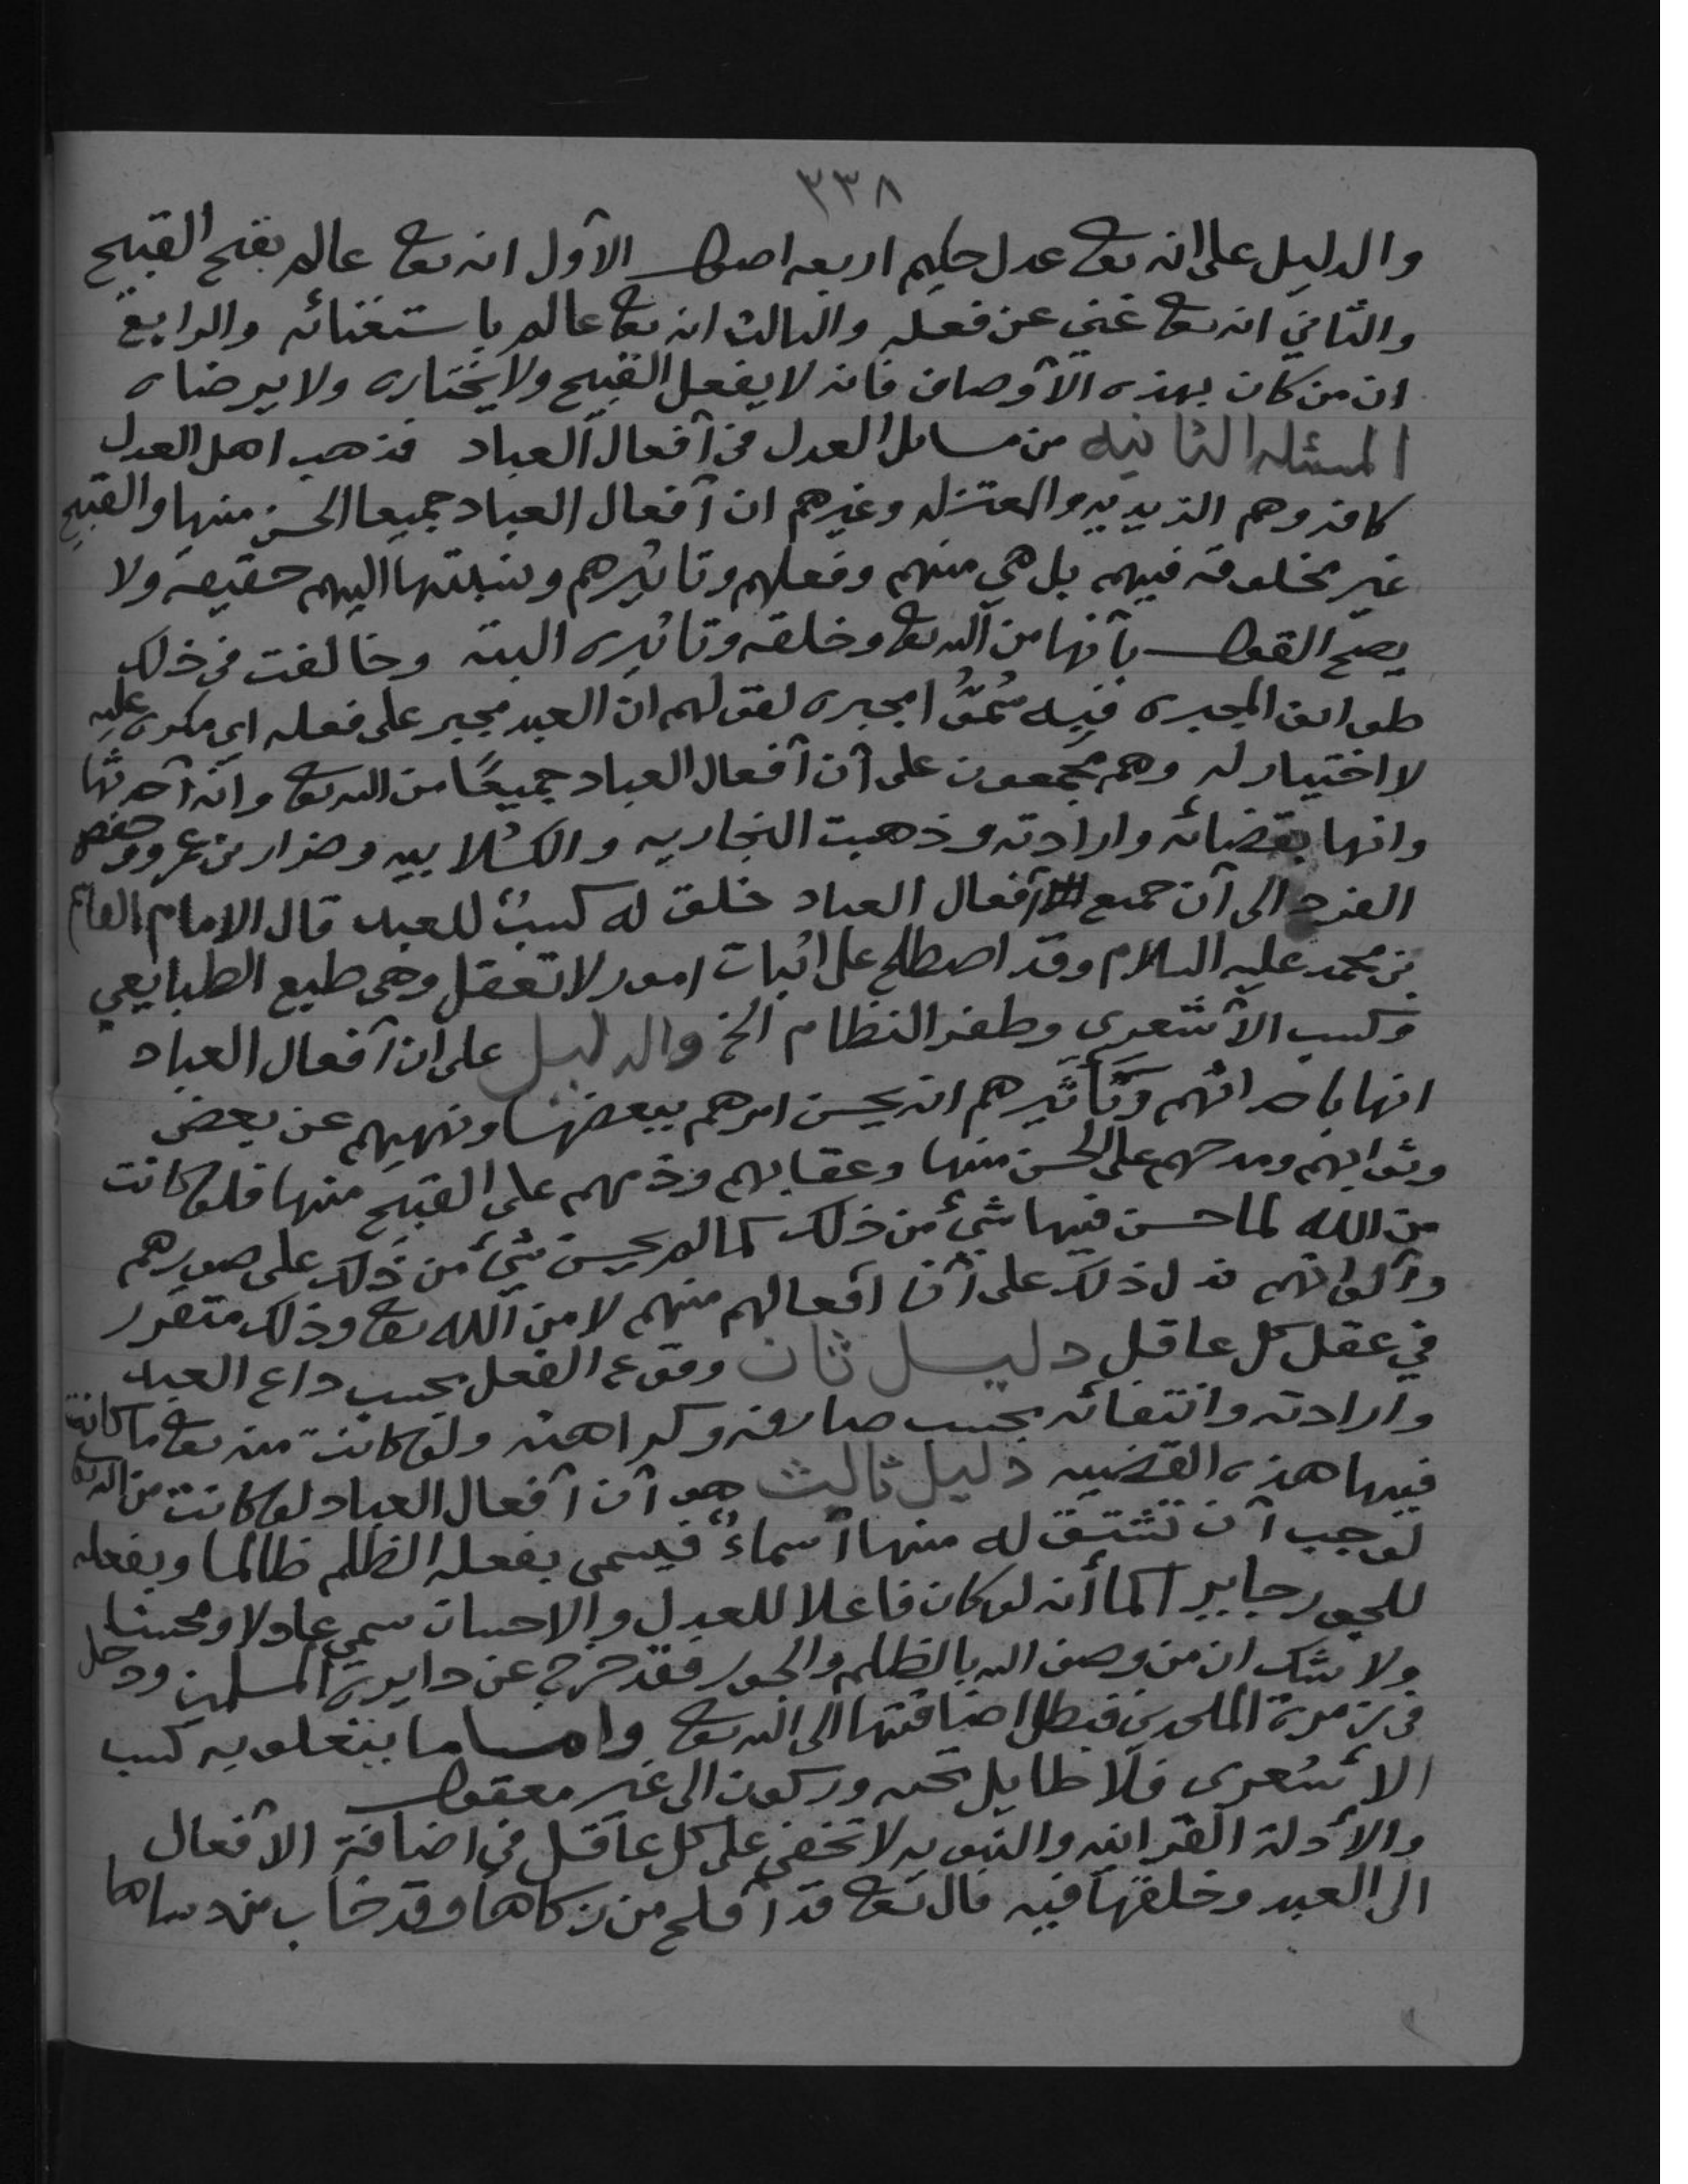 ٣٣٨
والدليل على انه تعالى عدل حكيم اربعه اصول الأول انه تعالى عالم بقبح القبيح
والثاني انه تعالى غني عن فعله والثالث انه تعالى عالم باستغنائه والرابع
ان من كان بهذه الأوصاف فانه لا يفعل القبيح ولا يختاره ولا يرضاه
المسئله الثانيه من مسائل العدل في أفعال العباد فذهب اهل العدل
كافه وهم الزيديه والمعتزله وغيرهم ان أفعال العباد جميعا الحسن منها والقبيح
غير مخلوقه فيهم بل هي منهم وفعلهم وتاثيرهم ونسبتها اليهم حقيقه ولا
يصح القول بأنها من الله تعالى وخلقه وتاثيره البته وخالفت في ذلك
طوائف المجبره فيه سُمُّوا مجبره لقولهم ان العبد مجبر على فعله اي مكره عليه
لا اختيار له وهم مجمعون على أن أفعال العباد جميعًا من الله تعالى وانه أحدثها
وانها بقضائه وارادته وذهبت النجاريه والكُلابيه وضرار بن عمرو وحفص
الفرد الى أن جميع أفعال العباد خلق له كسبٌ للعبد قال الامام القاسم
بن محمد عليه السلام وقد اصطلح على اثبات امور لا تعقل وهي طبع الطبايعي
وكسب الأشعري وطفر النظام الخ والدليل على ان أفعال العباد
انها باحداثهم وتَأثيرهم انه يحسن امرهم ببعضها ونهيهم عن بعض
وثوابهم ومدحهم على الحسن منها وعقابهم وذمهم على القبيح منها فلو كانت
من الله لما حسن فيها شيئ من ذلك كما لم يحسن شيئ من ذلك على صورهم
وألوانهم فدل ذلك على أن افعالهم منهم لا من الله تعالى وذلك متقرر
في عقل كل عاقل دليل ثان وقوع الفعل بحسب داع العبد
وارادته وانتفائه بحسب صارفه وكراهته ولو كانت منه تعالى ما كانت
فيها هذه القضيه دليل ثالث هو أن أفعال العباد لو كانت من الله تعالى
لوجب أن تشتق له منها أسماءٌ فيسمى بفعله الظلم ظالما وبفعله
للجور جايرا كما أنه لو كان فاعلا للعدل والاحسان سمي عادلا ومحسنا
ولا شك ان من وصف الله بالظلم والجور فقد خرج عن دايرة المسلمين ودخل
في زمرة الملحدين فبطل اضافتها الى الله تعالى واما ما يتعلو به كسب
الأشعري فلا طايل تحته وركون الى غير معقول
والأدلة القرانيه والنبويه لا تخفى على كل عاقل في اضافة الأفعال
الى العبد وخلقها فيه قال تعالى قد أفلح من زكاها وقد خاب من دساها